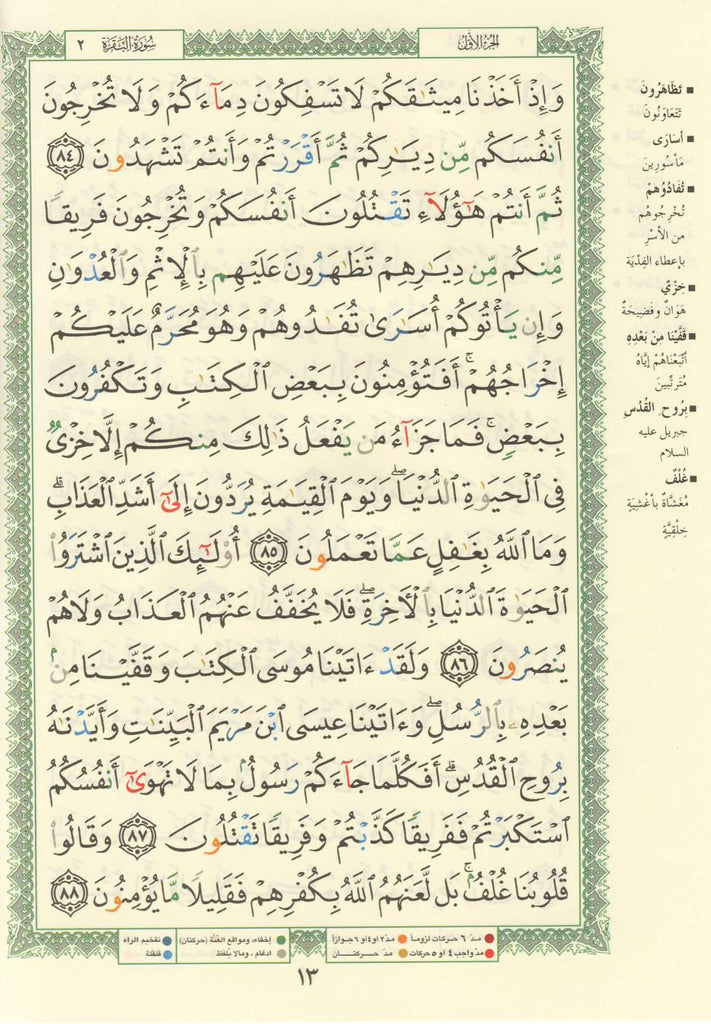 الجزء الأول
سورة البقرة ٢
وَإِذْ أَخَذْنَا مِيثَٰقَكُمْ لَا تَسْفِكُونَ دِمَآءَكُمْ وَلَا تُخْرِجُونَ
أَنفُسَكُم مِّن دِيَٰرِكُمْ ثُمَّ أَقْرَرْتُمْ وَأَنتُمْ تَشْهَدُونَ ٨٤
ثُمَّ أَنتُمْ هَٰٓؤُلَآءِ تَقْتُلُونَ أَنفُسَكُمْ وَتُخْرِجُونَ فَرِيقًا
مِّنكُم مِّن دِيَٰرِهِمْ تَظَٰهَرُونَ عَلَيْهِم بِٱلْإِثْمِ وَٱلْعُدْوَٰنِ
وَإِن يَأْتُوكُمْ أُسَٰرَىٰ تُفَٰدُوهُمْ وَهُوَ مُحَرَّمٌ عَلَيْكُمْ
إِخْرَاجُهُمْ ۚ أَفَتُؤْمِنُونَ بِبَعْضِ ٱلْكِتَٰبِ وَتَكْفُرُونَ
بِبَعْضٍ ۚ فَمَا جَزَآءُ مَن يَفْعَلُ ذَٰلِكَ مِنكُمْ إِلَّا خِزْىٌ
فِى ٱلْحَيَوٰةِ ٱلدُّنْيَا ۖ وَيَوْمَ ٱلْقِيَٰمَةِ يُرَدُّونَ إِلَىٰٓ أَشَدِّ ٱلْعَذَابِ ۗ
وَمَا ٱللَّهُ بِغَٰفِلٍ عَمَّا تَعْمَلُونَ ٨٥ أُو۟لَٰٓئِكَ ٱلَّذِينَ ٱشْتَرَوُا۟
ٱلْحَيَوٰةَ ٱلدُّنْيَا بِٱلْءَاخِرَةِ ۖ فَلَا يُخَفَّفُ عَنْهُمُ ٱلْعَذَابُ وَلَا هُمْ
يُنصَرُونَ ٨٦ وَلَقَدْ ءَاتَيْنَا مُوسَى ٱلْكِتَٰبَ وَقَفَّيْنَا مِنۢ
بَعْدِهِۦ بِٱلرُّسُلِ ۖ وَءَاتَيْنَا عِيسَى ٱبْنَ مَرْيَمَ ٱلْبَيِّنَٰتِ وَأَيَّدْنَٰهُ
بِرُوحِ ٱلْقُدُسِ ۗ أَفَكُلَّمَا جَآءَكُمْ رَسُولٌۢ بِمَا لَا تَهْوَىٰٓ أَنفُسُكُمُ
ٱسْتَكْبَرْتُمْ فَفَرِيقًا كَذَّبْتُمْ وَفَرِيقًا تَقْتُلُونَ ٨٧ وَقَالُوا۟
قُلُوبُنَا غُلْفٌۢ ۚ بَل لَّعَنَهُمُ ٱللَّهُ بِكُفْرِهِمْ فَقَلِيلًا مَّا يُؤْمِنُونَ ٨٨
تَظَاهَرُونَ
تَتَعَاوَنُونَ
أُسَارَى
مَأْسُورِينَ
تُفَادُوهُمْ
تُخْرِجُوهُم
من الأَسْرِ
بإعطاء الفِدْيَة
خِزْيٌ
هَوَانٌ وفَضِيحَةٌ
قَفَّيْنَا مِنْ بَعْدِهِ
أَتْبَعْنَاهُمْ إيَّاهُ
مُتَرَتِّبِينَ
بِرُوحِ القُدُسِ
جبريل عليه
السلام
غُلْفٌ
مُغَشَّاةٌ بأَغْشِيَةٍ
خِلْقِيَّةٍ
مدّ ٦ حركات لزوماً مدّ ٢ أو ٤ أو ٦ جوازاً
مدّ واجب ٤ أو ٥ حركات مدّ حركتان
إخفاء، ومواقع الغُنَّة (حركتان) تفخيم الراء
إدغام، وما لا يُلفَظ قلقلة
١٣